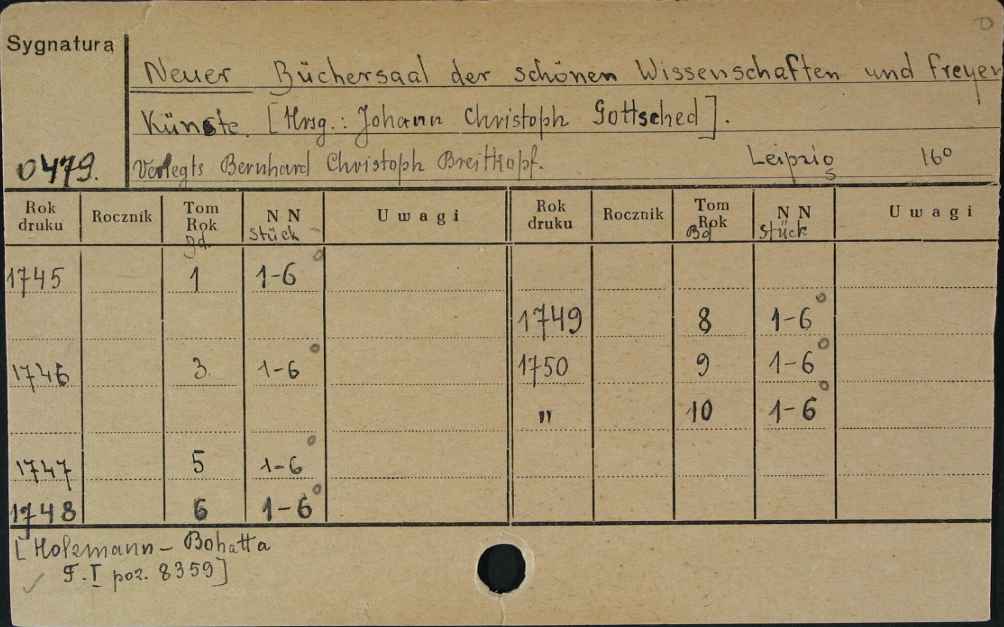 D
Sygnatura
Neuer Büchersaal der schönen Wissenschaften und freyen
Künste. [Hrsg.: Johann Christoph Gottsched].
0479. Verlegts Bernhard Christoph Breitkopf. Leipzig 16°
Rok druku Rocznik Tom Rok Bd. NN Stück Uwagi Rok druku Rocznik Tom Rok Bd NN Stück Uwagi
1745 1 1-6°
1749 8 1-6°
1746 3. 1-6° 1750 9 1-6°
" 10 1-6°
1747 5 1-6°
1748 6 1-6°
[Holzmann - Bohatta
✓ T. I poz. 8359]